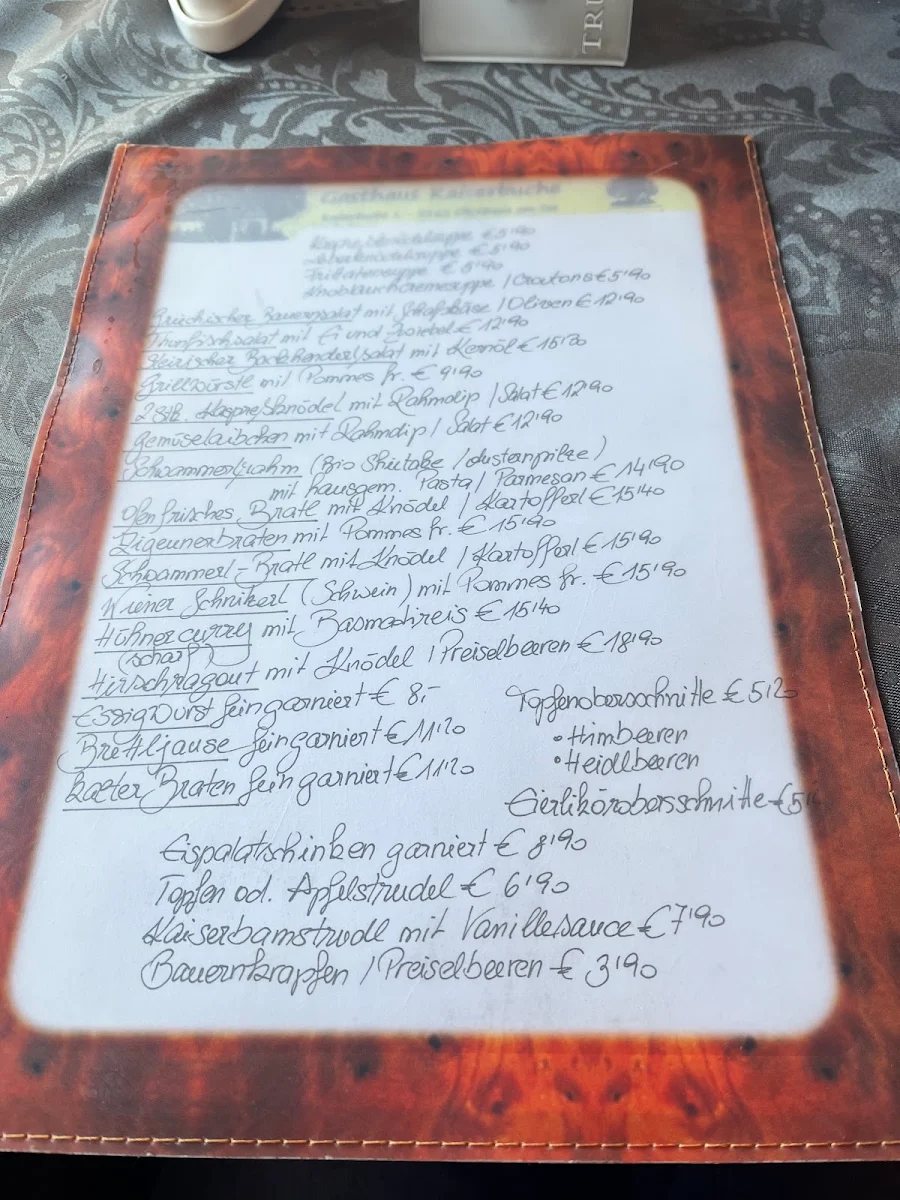 TRU
Gasthaus Kaiserbuche
Kaspressknödelsuppe € 5'90
Leberknödelsuppe € 5'90
Fritatensuppe € 5'90
Knoblauchcremesuppe / Croutons € 5'90
Griechischer Bauernsalat mit Schafskäse / Oliven € 12'90
Thunfischsalat mit Ei und Zwiebel € 12'90
Steirischer Backhenderlsalat mit Kernöl €
Grillwürste mit Pommes fr. € 9'90
2 Stk. Kaspreßknödel mit Rahmdip / Salat € 12'90
gemüselaibchen mit Rahmdip / Salat € 12'90
Schwammerlrahm (Bio Shiitake / Austernpilze)
mit hausgem. Pasta / Parmesan € 14'90
Ofenfrisches Bratl mit Knödel / Kartofferl € 15'40
Zigeunerbraten mit Pommes fr. € 15'90
Schwammerl-Bratl mit Knödel / Kartofferl € 15'90
Wiener Schnitzerl (Schwein) mit Pommes fr. € 15'90
Hühnercurry mit Basmatireis € 15'40
(scharf)
Hirschragout mit Knödel / Preiselbeeren € 18'90
Essigwurst fein garniert € 8,-
Brettljause fein garniert € 11'20
Kalter Braten fein garniert € 11'20
Topfenobersschnitte € 5'20
• Himbeeren
• Heidlbeeren
Eierlikörobersschnitte € 5'
Eispalatschinken garniert € 8'90
Topfen od. Apfelstrudel € 6'90
Kaiserbamstrudl mit Vanillesauce € 7'90
Bauernkrapfen / Preiselbeeren € 3'90